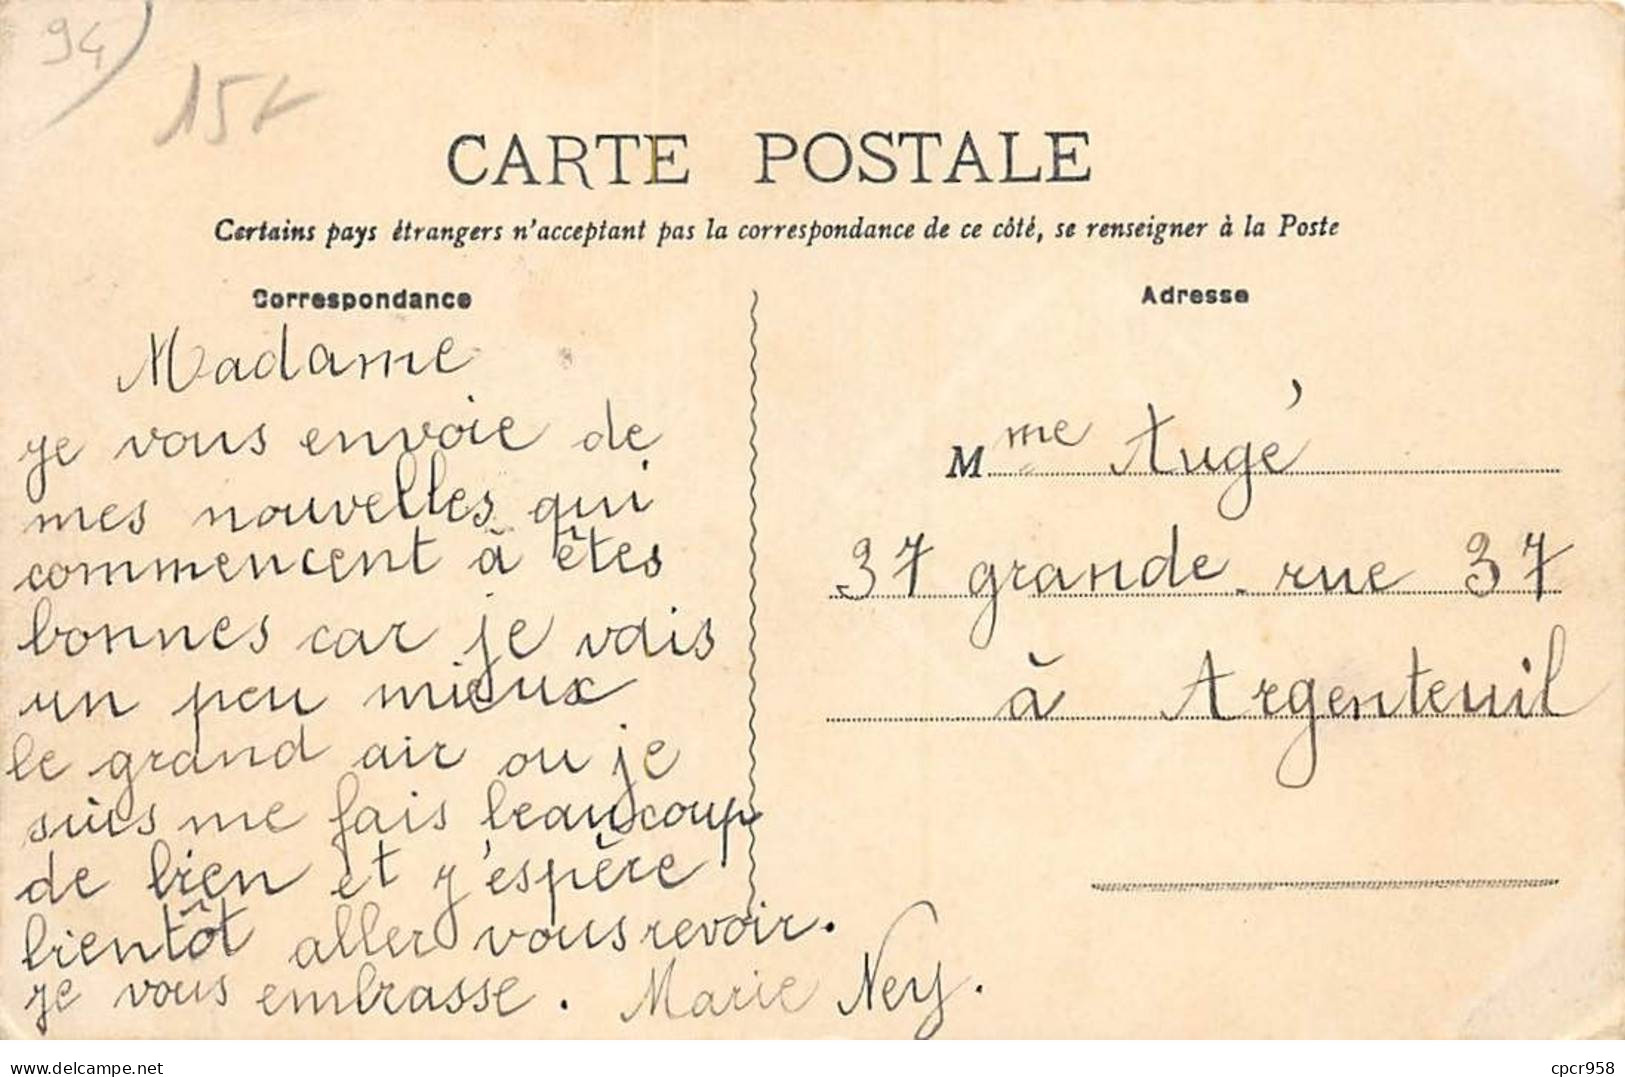 94
15f
CARTE POSTALE
Certains pays étrangers n'acceptant pas la correspondance de ce côté, se renseigner à la Poste
Correspondance
Madame
je vous envoie de
mes nouvelles qui
commencent à êtes
bonnes car je vais
un peu mieux
le grand air ou je
suis me fais beaucoup
de bien et j'espère
bientôt aller vous revoir.
je vous embrasse. Marie Ney.
Adresse
Mme Augé
37 grande rue 37
à Argenteuil
www.delcampe.net
cpcr958